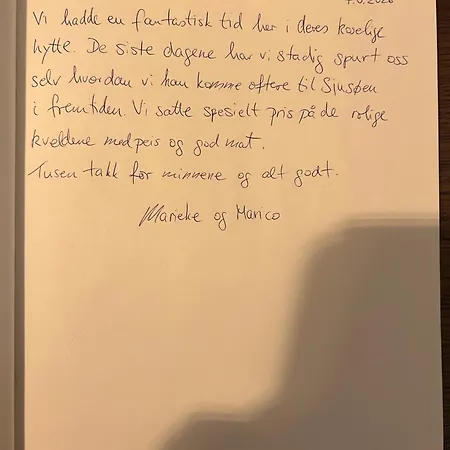 Vi hadde en fantastisk tid her i deres koselige
hytte. De siste dagene har vi stadig spurt oss
selv hvordan vi kan komme oftere til Sjusøen
i fremtiden. Vi satte spesielt pris på de rolige
kveldene med peis og god mat.
Tusen takk for minnene og alt godt.
Marieke og Marico